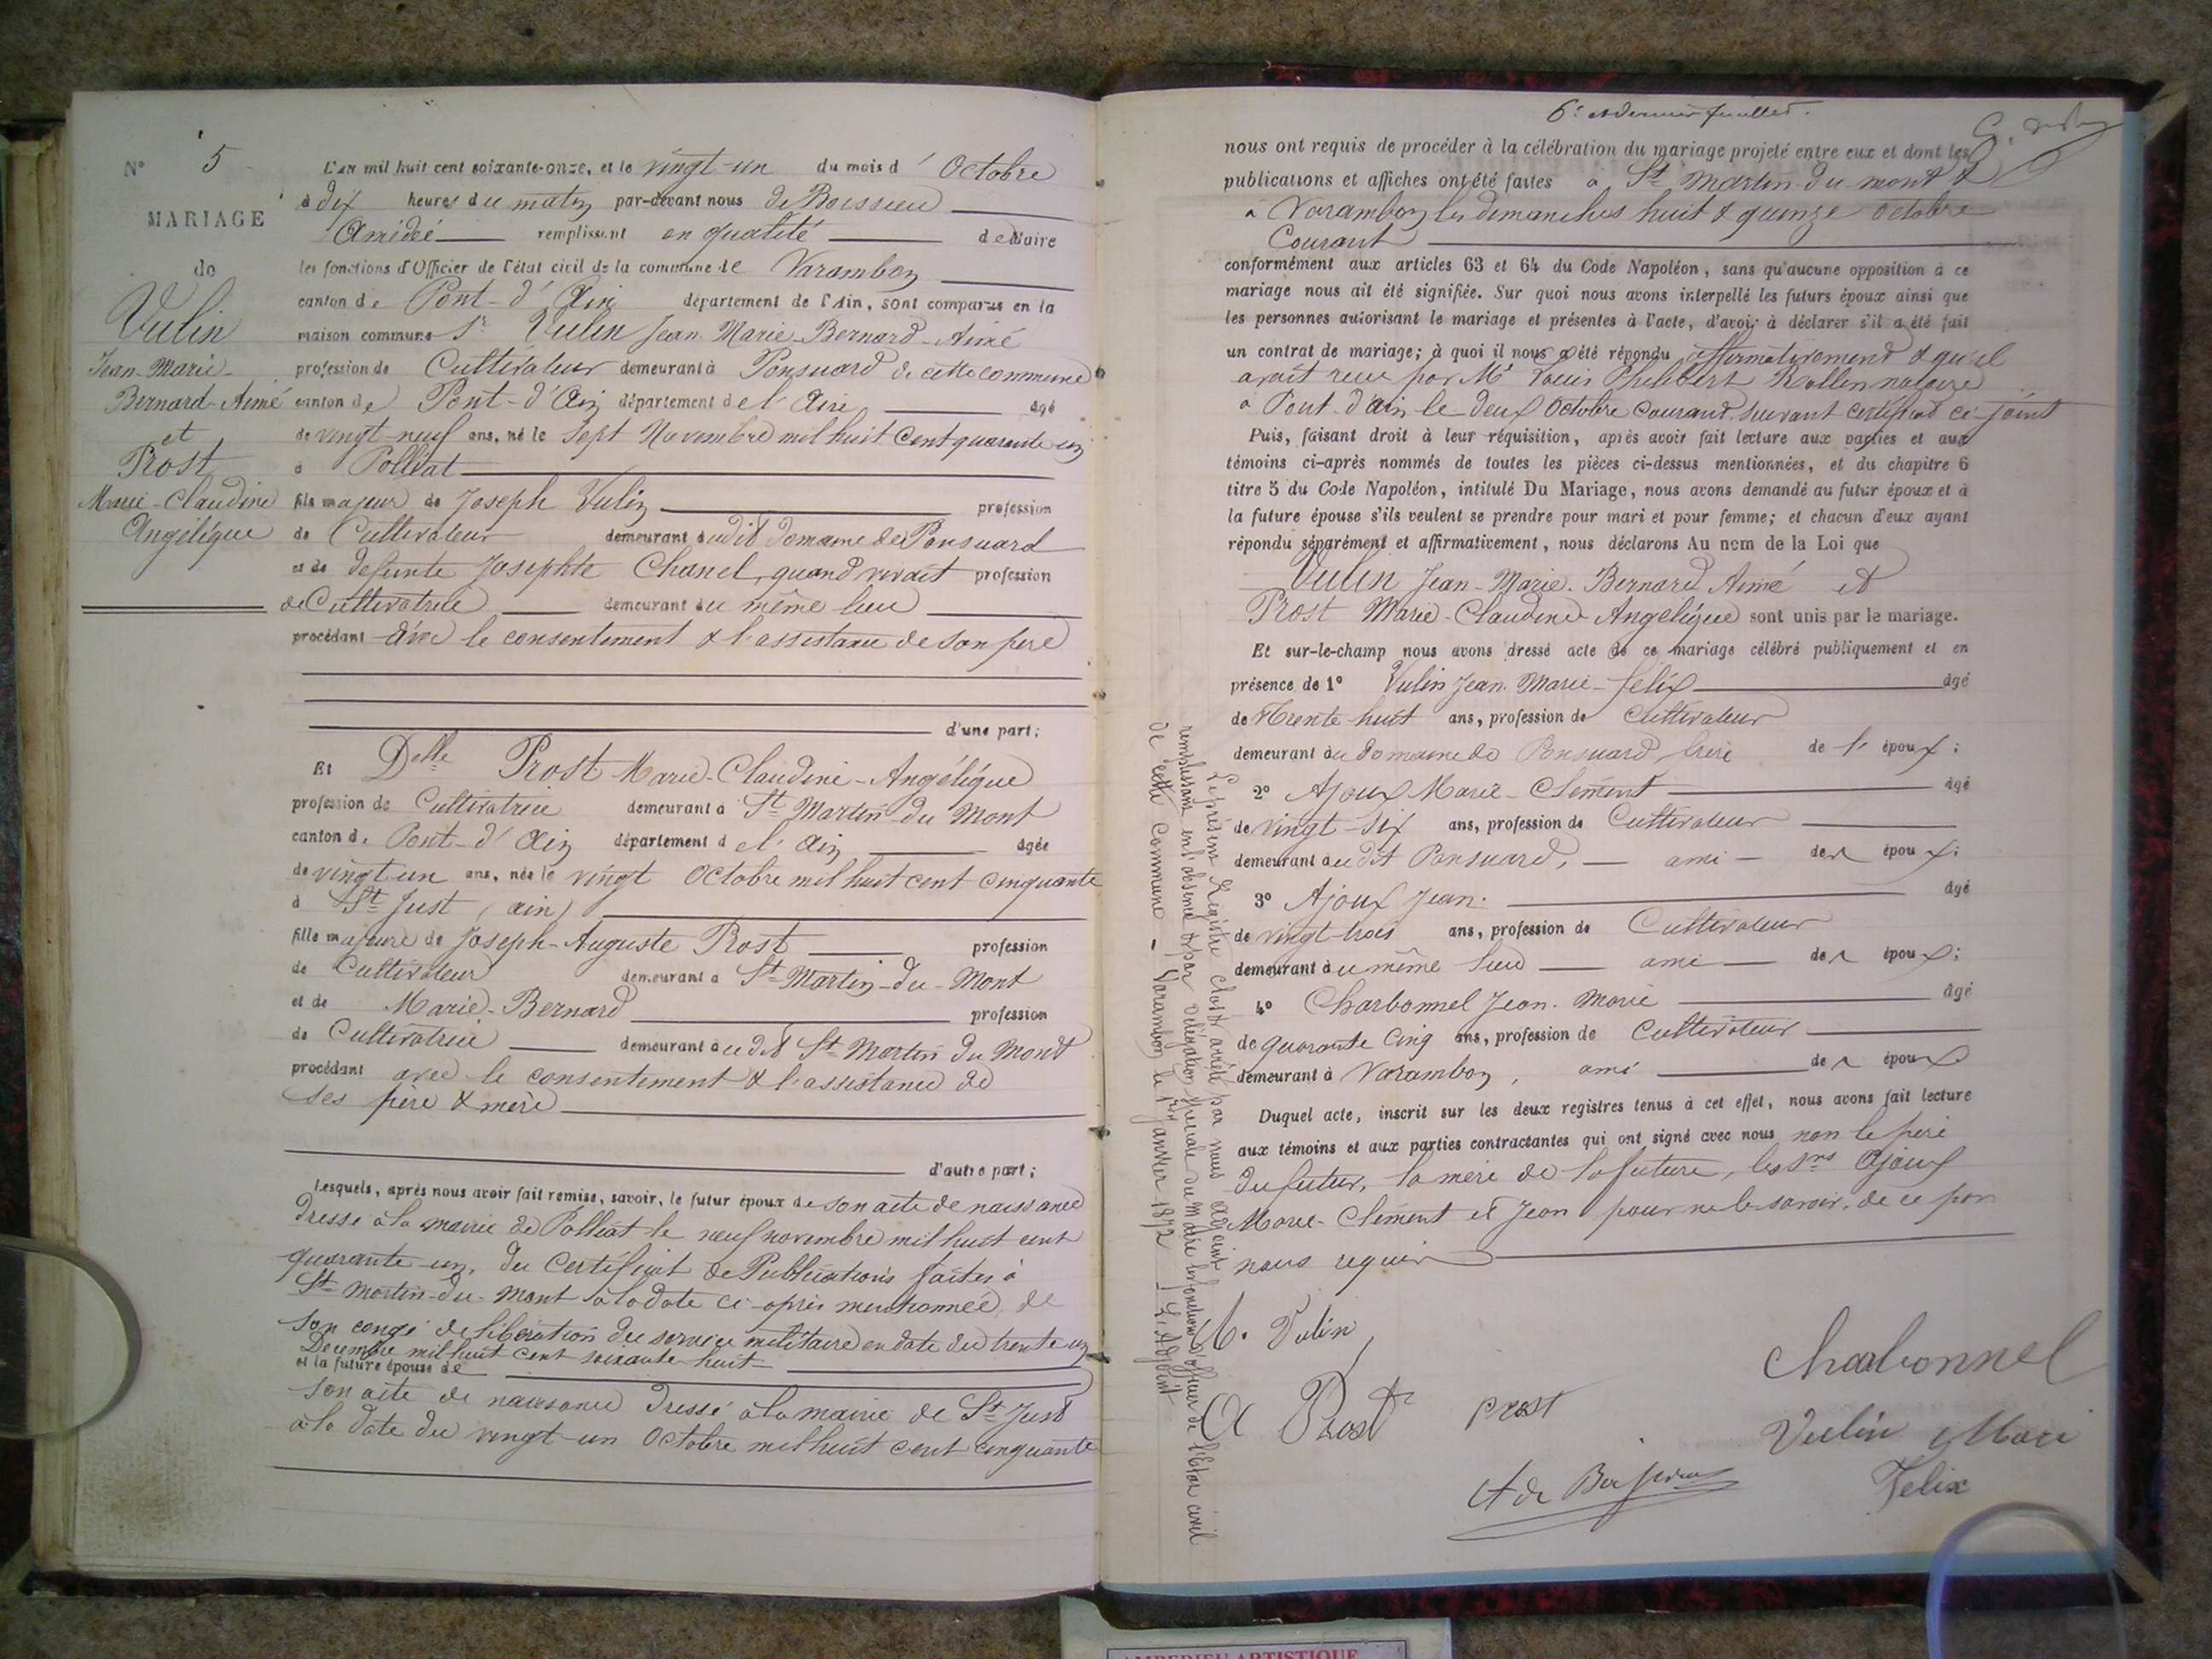 N° 5
MARIAGE
de
Vulin
Jean-Marie-
Bernard-Aimé
et
Prost
Marie-Claudine
Angélique
L'an mil huit cent soixante-onze, et le vingt-un du mois d' Octobre
à dix heures du matin par-devant nous De Boissieu
Amédée remplissant en qualité de Maire
les fonctions d'Officier de l'état civil de la commune de Varambon
canton de Pont-d'Ain département de l'Ain, sont comparus en la
maison commune Sr Vulin Jean Marie-Bernard-Aimé
profession de Cultivateur demeurant à Ponsuard de cette commune
canton de Pont-d'Ain département de l'Ain âgé
de vingt-neuf ans, né le Sept Novembre mil huit Cent quarante un
à Polliat
fils majeur de Joseph Vulin profession
de Cultivateur demeurant audit Domaine de Ponsuard
et de défunte Josephte Chanel, quand vivait profession
de Cultivatrice demeurant au même lieu
procédant avec le consentement & l'assistance de son père
d'une part;
Et Delle Prost Marie-Claudine-Angélique
profession de Cultivatrice demeurant à St Martin du Mont
canton de Pont-d'Ain département de l'Ain âgée
de vingt-un ans, née le vingt Octobre mil huit cent cinquante
à St Just (ain)
fille majeure de Joseph-Auguste Prost profession
de Cultivateur demeurant à St-Martin-du-Mont
et de Marie-Bernard profession
de Cultivatrice demeurant audit St Martin du Mont
procédant avec le consentement & l'assistance de
ses père & mère
d'autre part;
Lesquels, après nous avoir fait remise, savoir, le futur époux de son acte de naissance
dressé à la mairie de Polliat le neuf novembre mil huit cent
quarante-un, du Certificat de Publications faites à
St Martin-du-Mont à la date ci-après mentionnée, de
son congé de libération du service militaire en date du trente un
Décembre mil huit cent soixante-huit
et la future épouse de
son acte de naissance dressé à la mairie de St Just
à la date du vingt-un Octobre mil huit cent cinquante
6e et dernier feuillet.
nous ont requis de procéder à la célébration du mariage projeté entre eux et dont les
publications et affiches ont été faites à St Martin-du-mont &
à Varambon les dimanches huit & quinze Octobre
Courant
conformément aux articles 63 et 64 du Code Napoléon, sans qu'aucune opposition à ce
mariage nous ait été signifiée. Sur quoi nous avons interpellé les futurs époux ainsi que
les personnes autorisant le mariage et présentes à l'acte, d'avoir à déclarer s'il a été fait
un contrat de mariage; à quoi il nous a été répondu affirmativement & qu'il
avait reçu par Me Louis Philibert Rollin notaire
à Pont-d'ain le deux Octobre courant suivant certificat ci-joint
Puis, faisant droit à leur réquisition, après avoir fait lecture aux parties et aux
témoins ci-après nommés de toutes les pièces ci-dessus mentionnées, et du chapitre 6
titre 5 du Code Napoléon, intitulé Du Mariage, nous avons demandé au futur époux et à
la future épouse s'ils veulent se prendre pour mari et pour femme; et chacun d'eux ayant
répondu séparément et affirmativement, nous déclarons Au nom de la Loi que
Vulin Jean-Marie-Bernard Aimé et
Prost Marie-Claudine Angélique sont unis par le mariage.
Et sur-le-champ nous avons dressé acte de ce mariage célébré publiquement et en
présence de 1° Vulin Jean Marie-félix âgé
de trente huit ans, profession de Cultivateur
demeurant au domaine de Ponsuard frère de l' époux;
2° Ajoux Marie-Clément âgé
de vingt-six ans, profession de Cultivateur
demeurant audit Ponsuard, ami des époux;
3° Ajoux Jean. âgé
de vingt-trois ans, profession de Cultivateur
demeurant au même lieu ami des époux;
4° Charbonnel Jean-Marie âgé
de quarante cinq ans, profession de Cultivateur
demeurant à Varambon, ami des époux
Duquel acte, inscrit sur les deux registres tenus à cet effet, nous avons fait lecture
aux témoins et aux parties contractantes qui ont signé avec nous non le père
du futur, la mère de la future, les srs Ajoux
Marie-Clément et Jean pour ne le savoir, de ce par
nous requis
b. Vulin
A Prost
Prost
Charbonnel
Vulin Marie
Felix
A de Boissieu
Le présent Registre clos & arrêté par nous adjoint
remplissant en l'absence & par délégation spéciale du maire les fonctions d'officier de l'état civil
de cette Commune - Varambon le 1er janvier 1872 - L'adjoint
AMBERIEU ARTISTIQUE